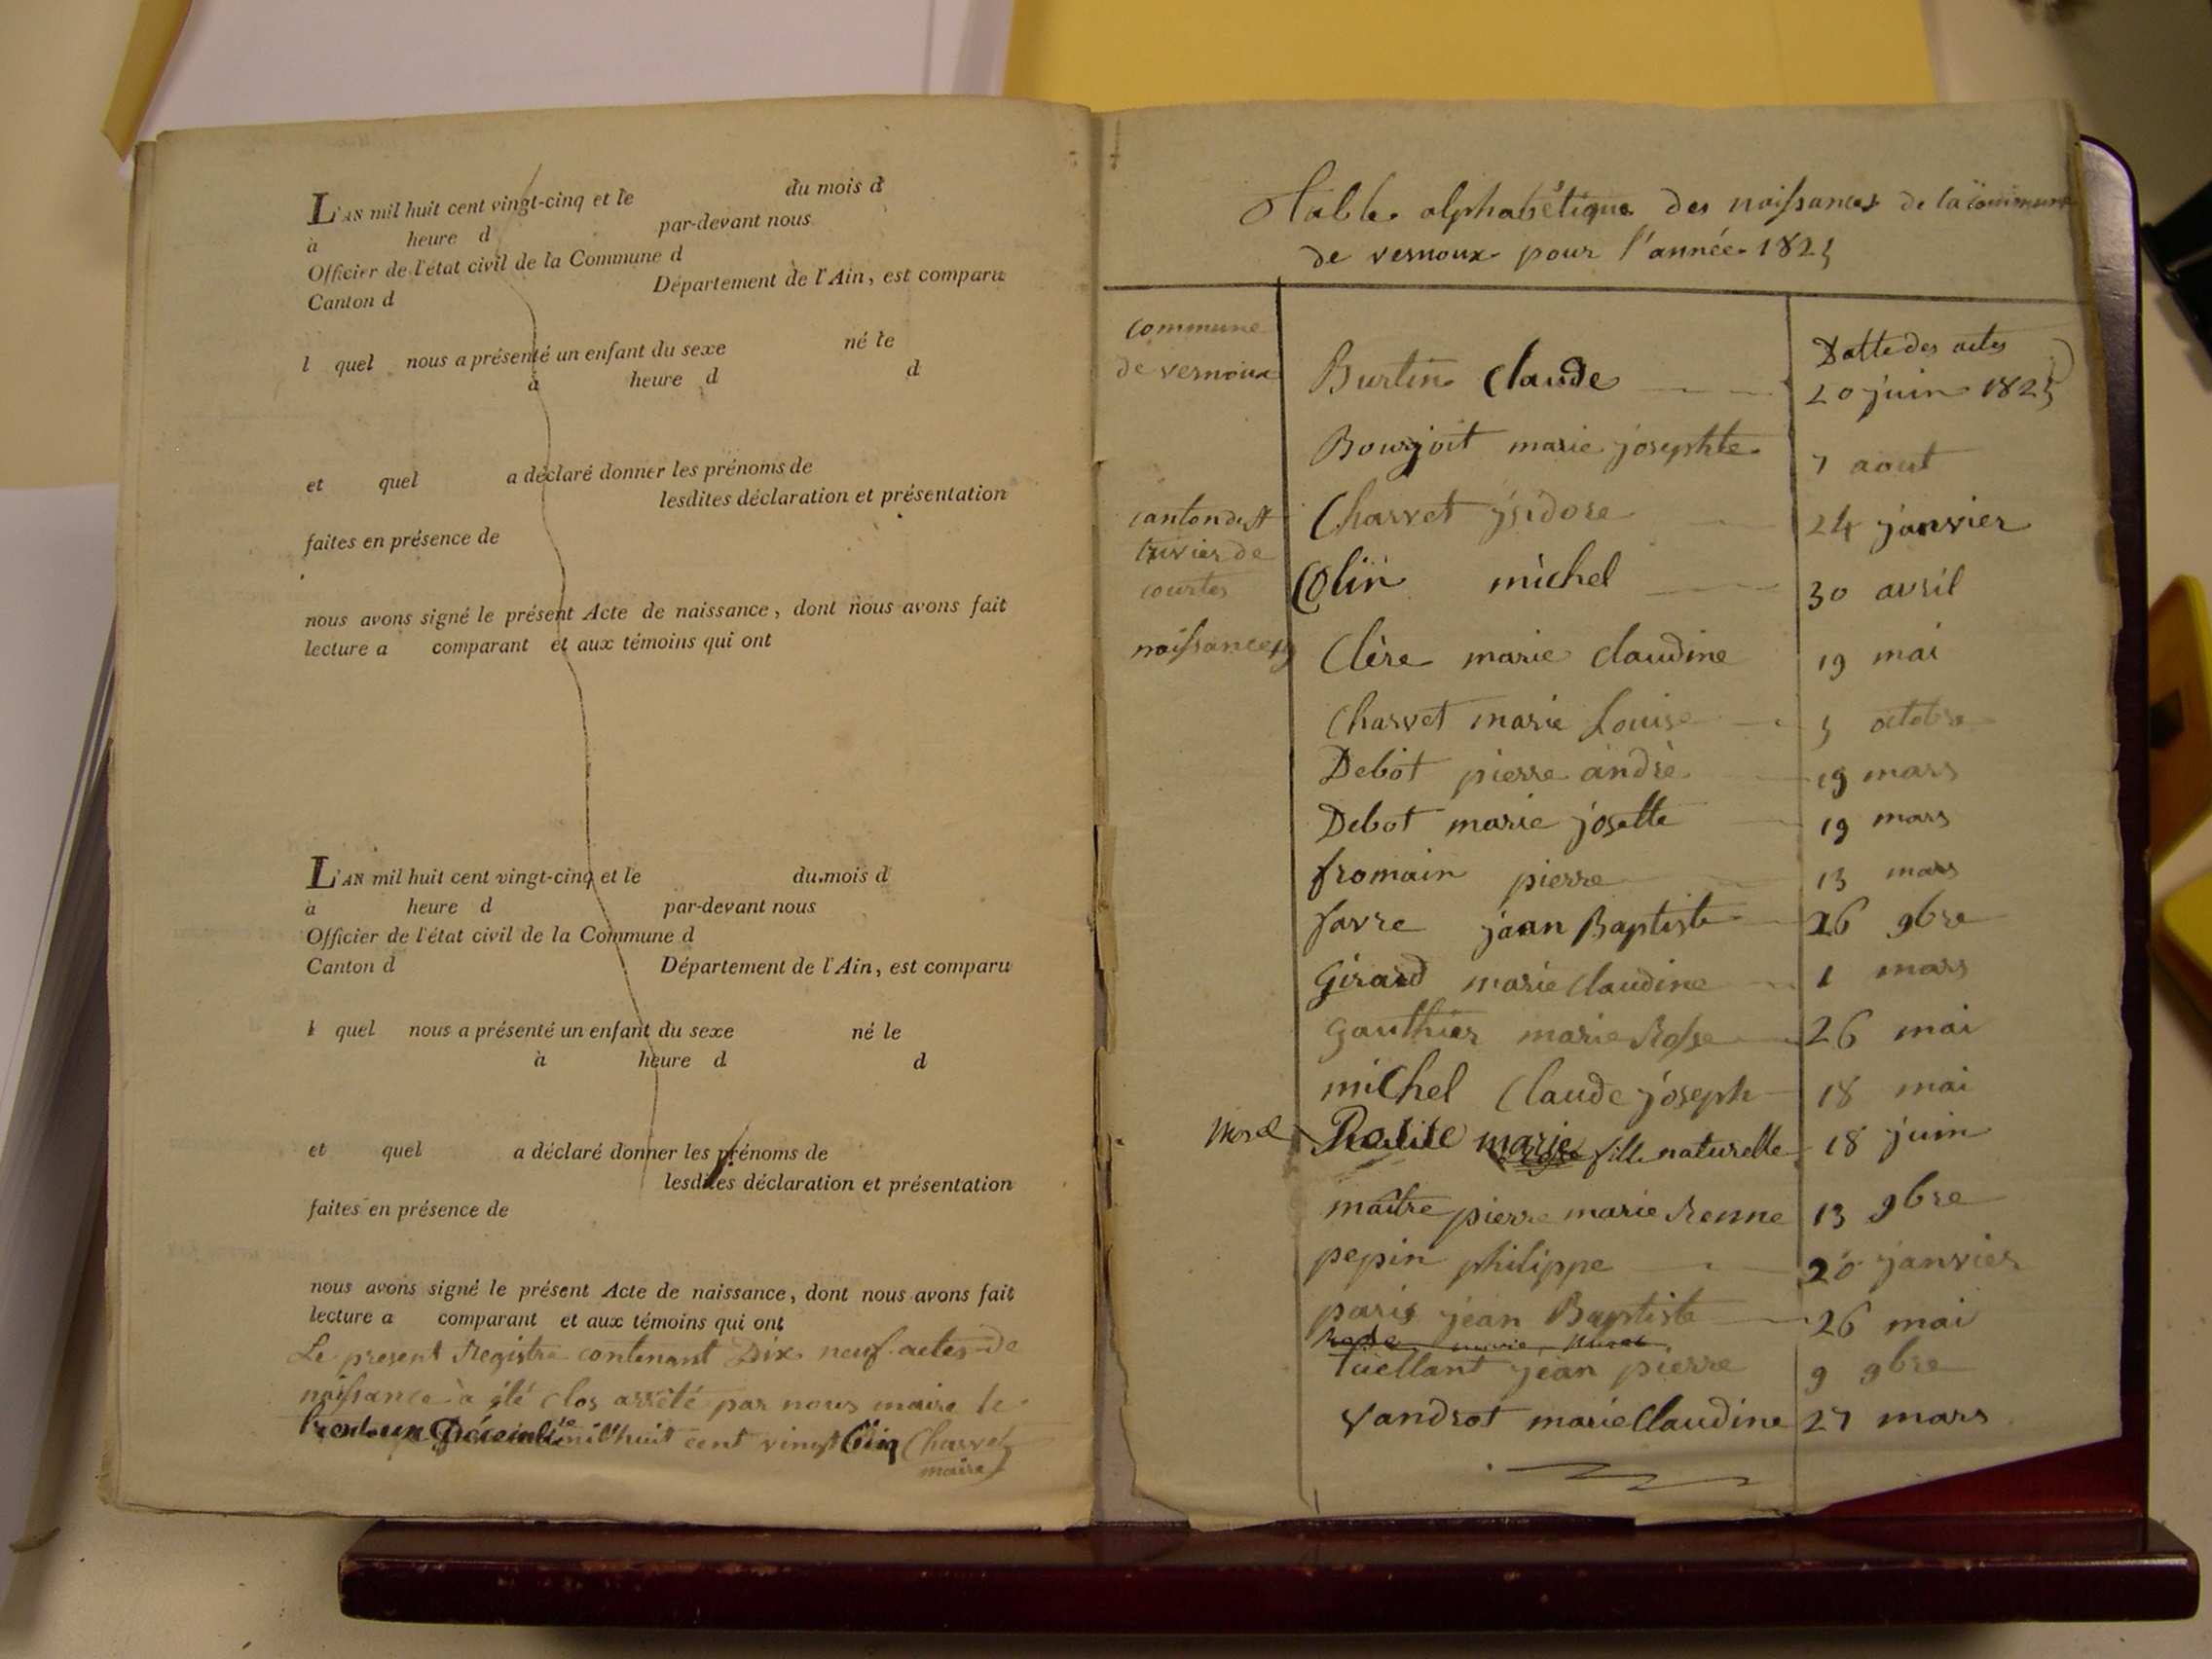 L'AN mil huit cent vingt-cinq et le du mois d
à heure d par-devant nous
Officier de l'état civil de la Commune d
Canton d Département de l'Ain, est comparu
l quel nous a présenté un enfant du sexe né le
à heure d d
et quel a déclaré donner les prénoms de
lesdites déclaration et présentation
faites en présence de
nous avons signé le présent Acte de naissance, dont nous avons fait
lecture a comparant et aux témoins qui ont
L'AN mil huit cent vingt-cinq et le du mois d
à heure d par-devant nous
Officier de l'état civil de la Commune d
Canton d Département de l'Ain, est comparu
l quel nous a présenté un enfant du sexe né le
à heure d d
et quel a déclaré donner les prénoms de
lesdites déclaration et présentation
faites en présence de
nous avons signé le présent Acte de naissance, dont nous avons fait
lecture a comparant et aux témoins qui ont
Le present Registre contenant Dix neuf actes de
naissance à été clos arrêté par nous maire le
trente un Décembre mil huit cent vingt Cinq Charvet
maire
Table alphabétique des naissances de la commune
de vernoux pour l'année 1825
commune
de vernoux
canton de St
trivier de
courtes
naissances
Datte des actes
Burtin Claude 20 juin 1825
Bourjoit marie josephte 7 aout
Charvet jsidore 24 janvier
Colin michel 30 avril
Clère marie claudine 19 mai
Charvet marie Louise 5 octobre
Debot pierre andrè 19 mars
Debot marie josette 19 mars
fromain pierre 13 mars
favre jean Baptiste 26 9bre
Girard marie Claudine 1 mars
Gauthier marie Rosse 26 mai
michel Claude joseph 18 mai
marie fille naturelle 18 juin
maître pierre marie Renne 13 9bre
pepin philippe 20 janvier
paris jean Baptiste 26 mai
Tüellant jean pierre 9 9bre
vandrot marie Claudine 27 mars